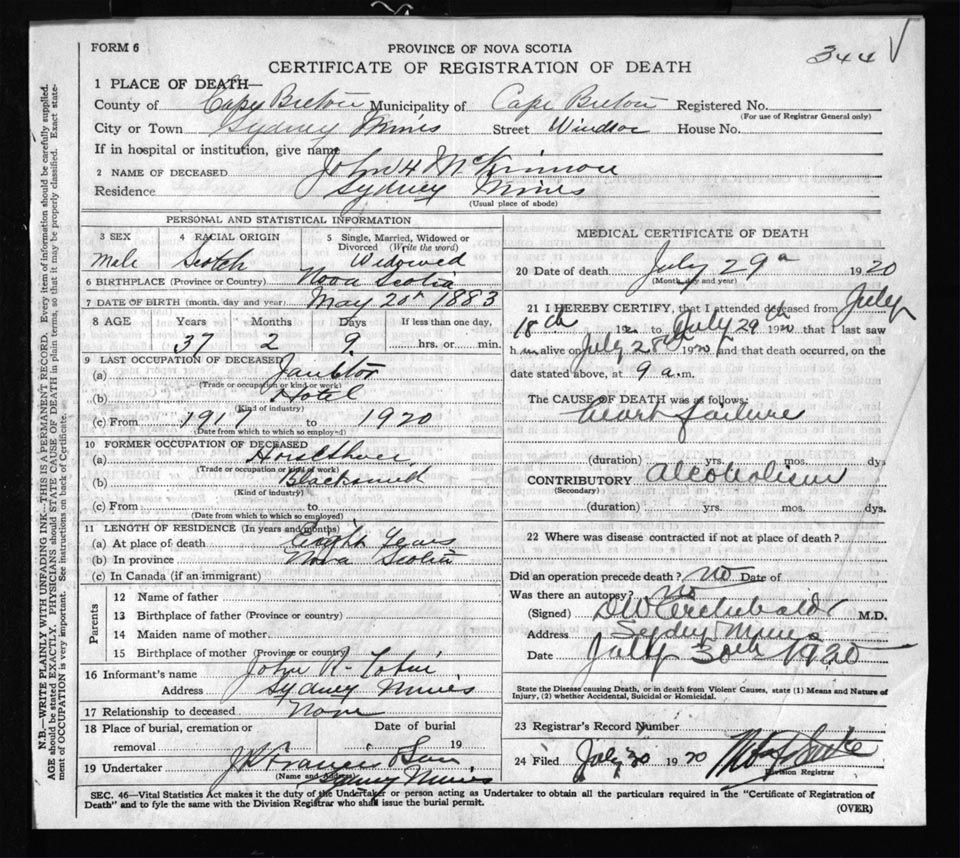 FORM 6
PROVINCE OF NOVA SCOTIA
344 √
CERTIFICATE OF REGISTRATION OF DEATH
1 PLACE OF DEATH—
County of Cape Breton Municipality of Cape Breton Registered No.
(For use of Registrar General only)
City or Town Sydney Mines Street Windsor House No.
If in hospital or institution, give name
2 NAME OF DECEASED John H McKinnon
Residence Sydney Mines
(Usual place of abode)
N.B.—WRITE PLAINLY WITH UNFADING INK—THIS IS A PERMANENT RECORD. Every item of information should be carefully supplied.
AGE should be stated EXACTLY. PHYSICIANS should STATE CAUSE OF DEATH in plain terms, so that it may be properly classified. Exact state-
ment of OCCUPATION is very important. See instructions on back of Certificate.
PERSONAL AND STATISTICAL INFORMATION
3 SEX 4 RACIAL ORIGIN 5 Single, Married, Widowed or
Divorced (Write the word)
Male Scotch Widowed
6 BIRTHPLACE (Province or Country) Nova Scotia
7 DATE OF BIRTH (month, day and year) May 20th 1883
8 AGE Years Months Days If less than one day,
37 2 9 hrs. or min.
9 LAST OCCUPATION OF DECEASED
(a) Janitor
(Trade or occupation or kind or work)
(b) Hotel
(Kind of industry)
(c) From 1917 to 1920
(Date from which to which so employed)
10 FORMER OCCUPATION OF DECEASED
(a) Horseshoer
(Trade or occupation or kind of work)
(b) Blacksmith
(Kind of industry)
(c) From to
(Date from which to which so employed)
11 LENGTH OF RESIDENCE (In years and months)
(a) At place of death Eight Years
(b) In province Nova Scotia
(c) In Canada (if an immigrant)
Parents
12 Name of father
13 Birthplace of father (Province or country)
14 Maiden name of mother
15 Birthplace of mother (Province or country)
16 Informant's name John R. Tobin
Address Sydney Mines
17 Relationship to deceased None
18 Place of burial, cremation or Date of burial
removal 19
19 Undertaker Son
(Name and Address)
Sydney Mines
MEDICAL CERTIFICATE OF DEATH
20 Date of death July 29th 1920
(Month, day and year)
21 I HEREBY CERTIFY, that I attended deceased from July
18th 192 to July 29th 1920 that I last saw
h im alive on July 28th 1920 and that death occurred, on the
date stated above, at 9 a.m.
The CAUSE OF DEATH was as follows:
heart failure
(duration) yrs. mos. dys
CONTRIBUTORY Alcoholism
(Secondary)
(duration) yrs. mos. dys.
22 Where was disease contracted if not at place of death?
Did an operation precede death? No Date of
Was there an autopsy? No
(Signed) D W Archibald M.D.
Address Sydney Mines
Date July 30th 1920
State the Disease causing Death, or in death from Violent Causes, state (1) Means and Nature of
Injury, (2) whether Accidental, Suicidal or Homicidal.
23 Registrar's Record Number
24 Filed July 30 1920
Division Registrar
SEC. 46—Vital Statistics Act makes it the duty of the Undertaker or person acting as Undertaker to obtain all the particulars required in the "Certificate of Registration of
Death" and to fyle the same with the Division Registrar who shall issue the burial permit.
(OVER)